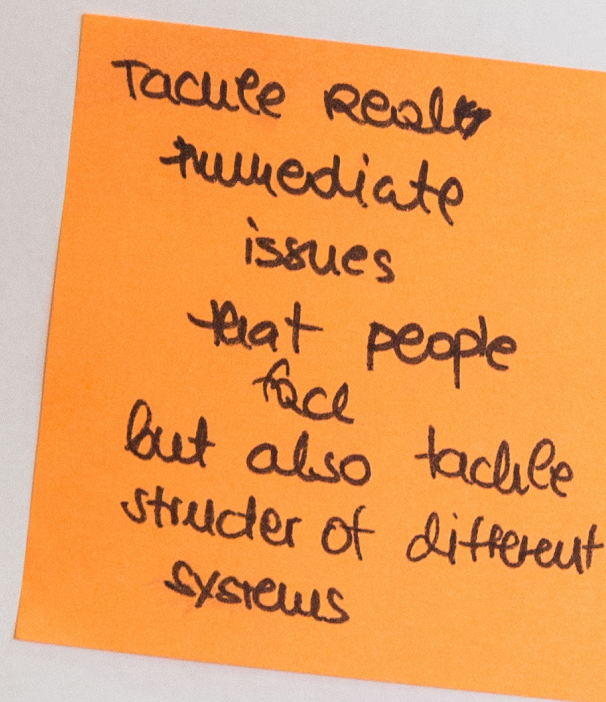 Tackle Real
immediate
issues
that people
face
but also tackle
struder of different
systems